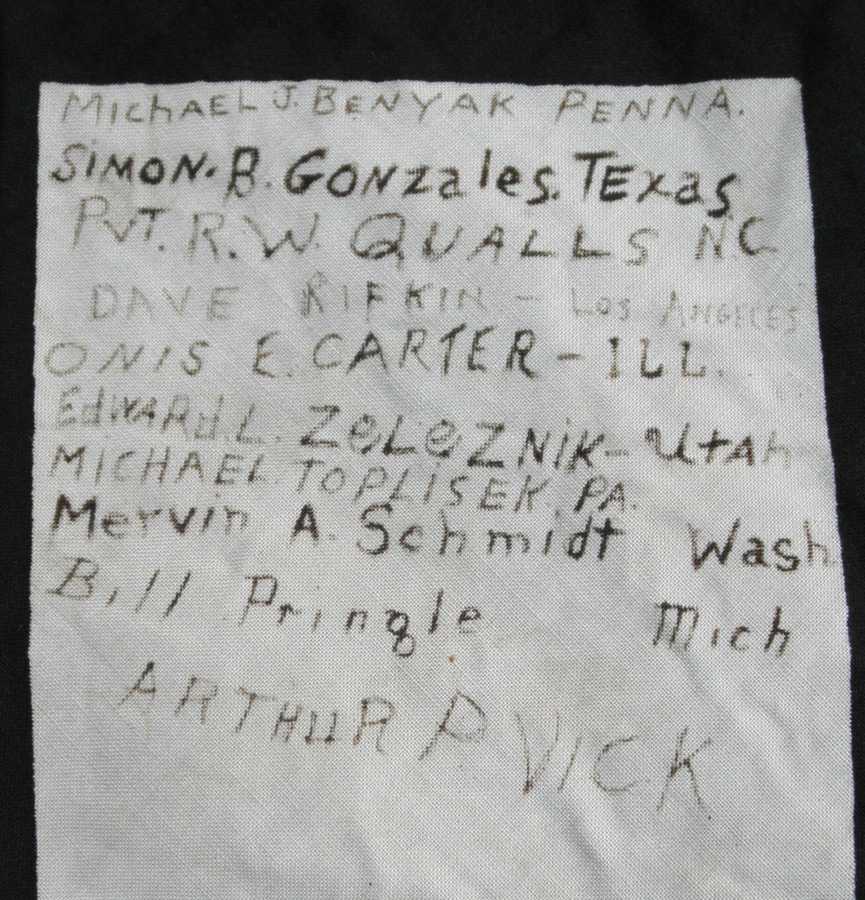 MIChAEL J. BENYAK PENNA.
SIMON. B. GONzales. TExas
PVT. R. W. QUALLS N.C.
DAVE RIFKIN - LOS ANGELES
ONIS E. CARTER - ILL.
EdWARd L. ZeLeZNIK - UtAh
MICHAEL TOPLISEK. PA.
Mervin A. Schmidt Wash
Bill Pringle Mich
ARTHUR P VICK